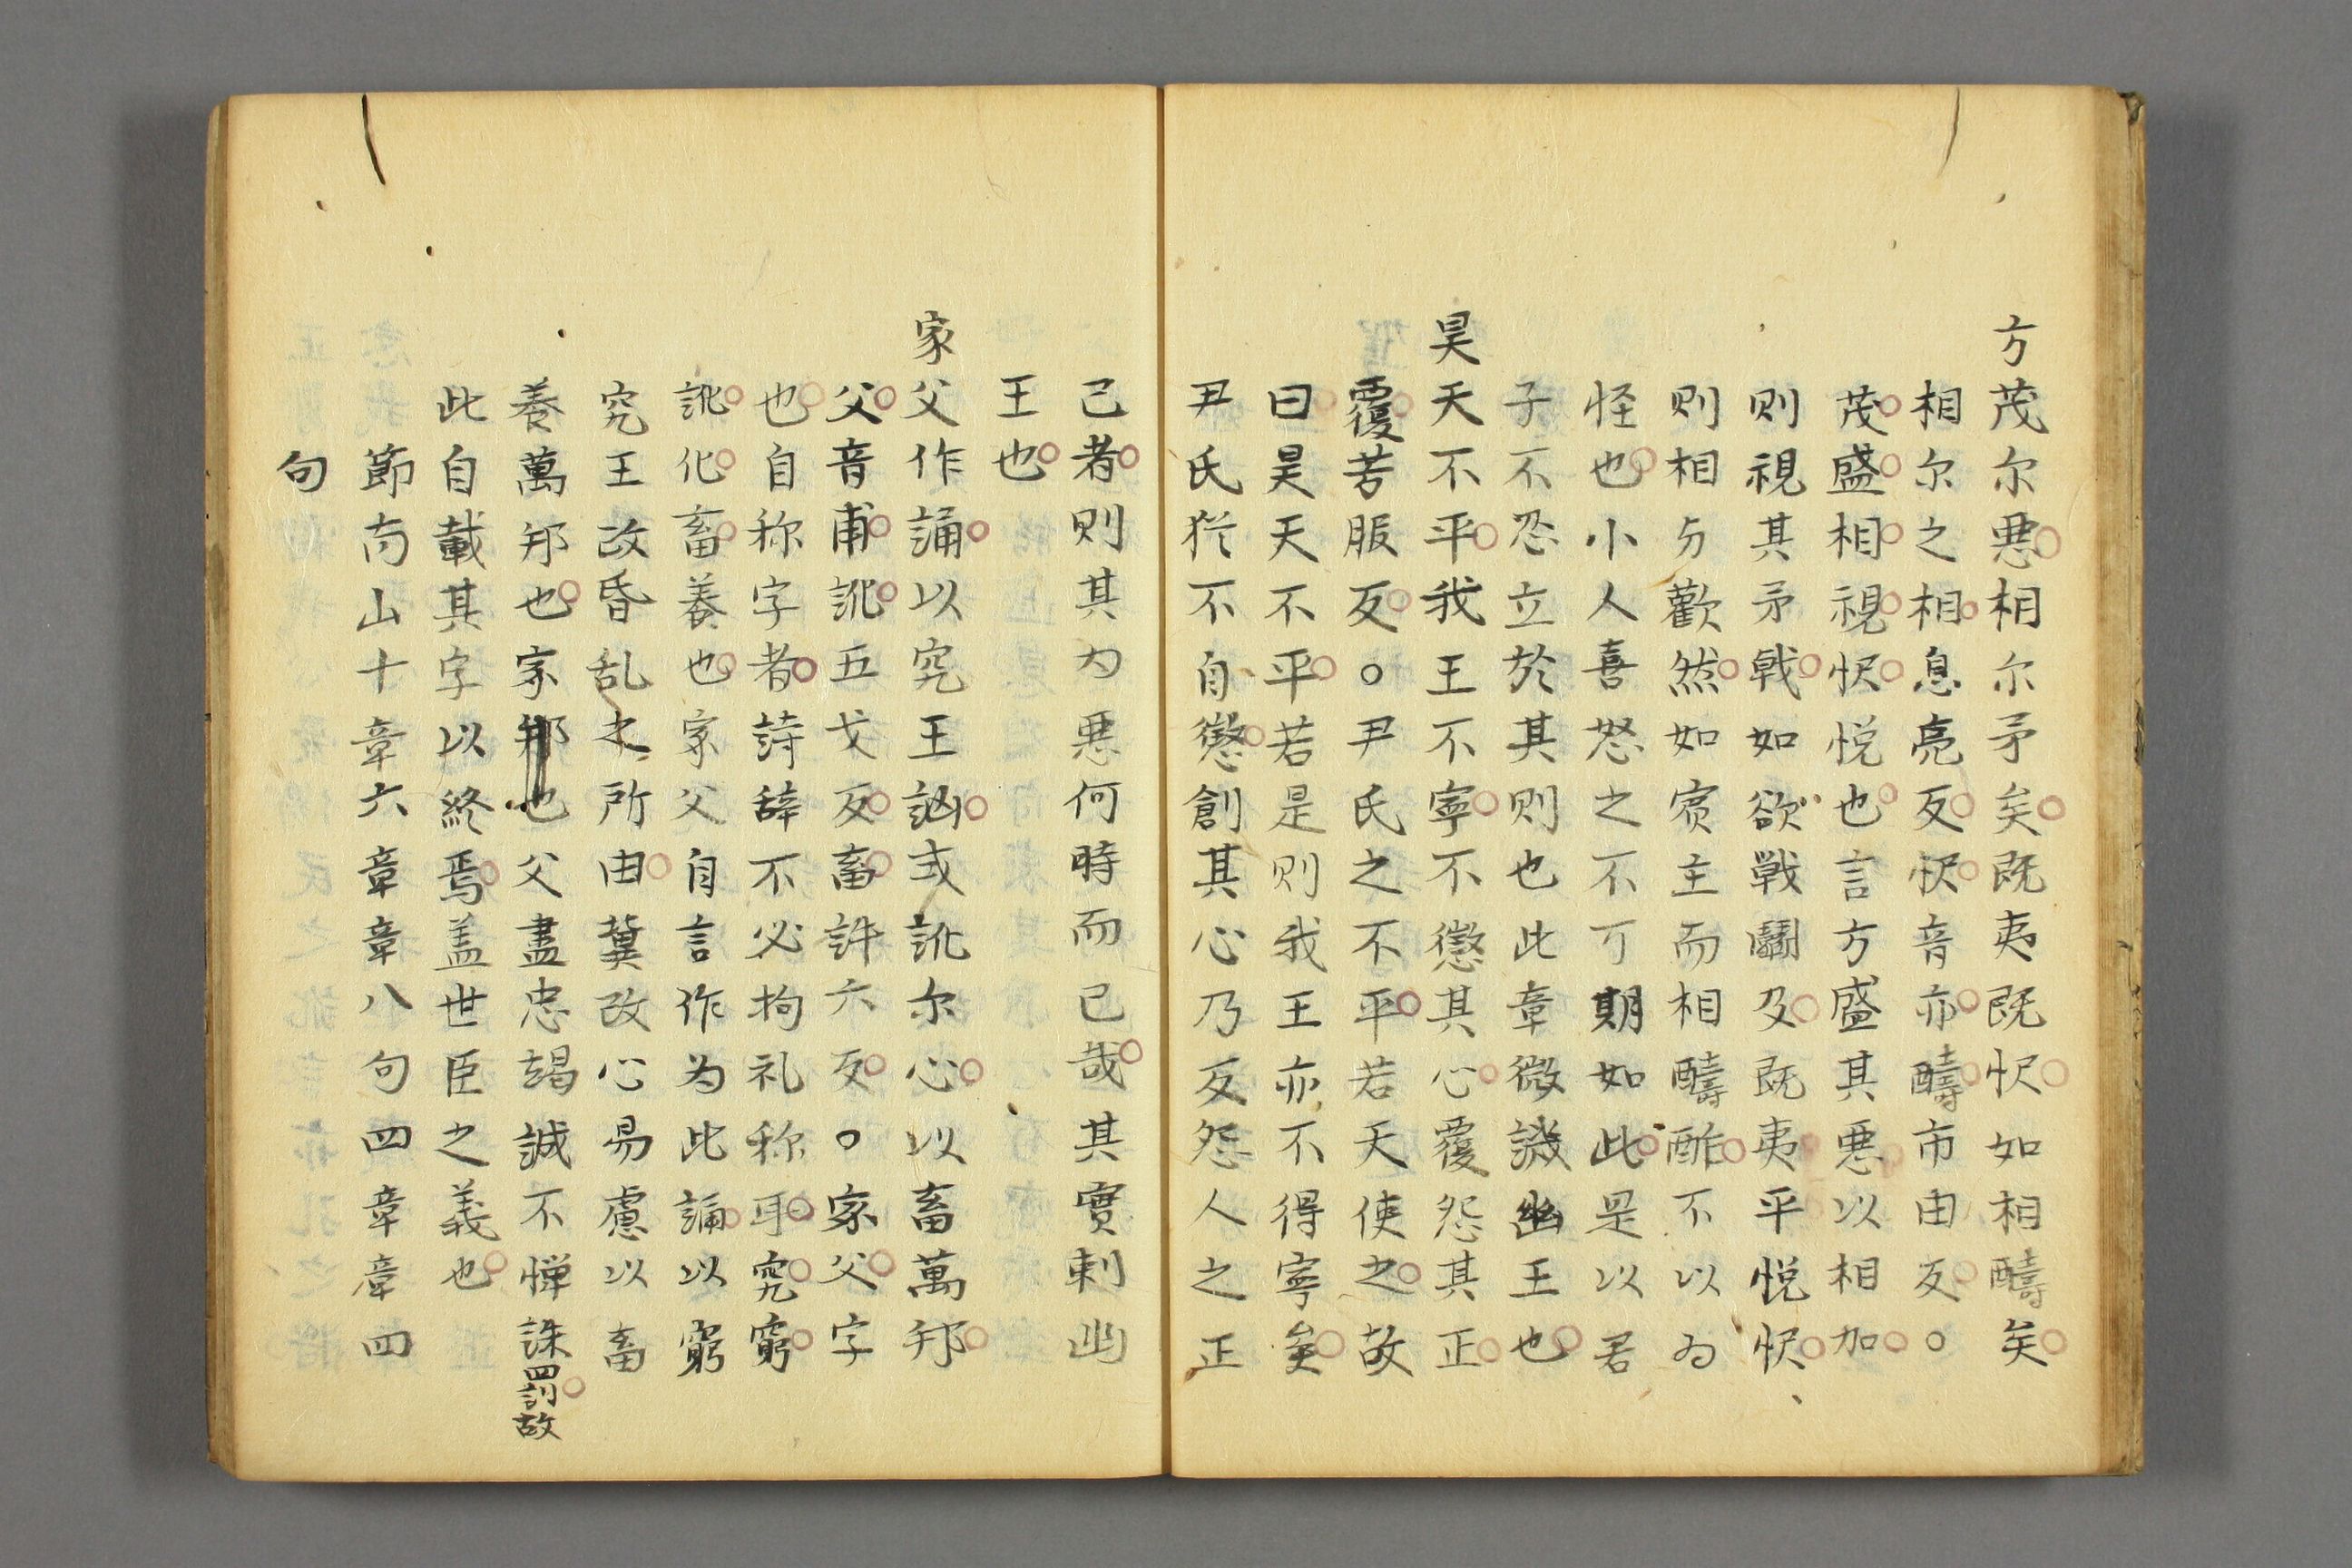 方茂尔悪相尔矛矣既夷既懌如相醻矣
相尔之相息亮反懌音亦醻市由反○
茂盛相視懌悦也言方盛其悪以相加
則視其矛戟如欲戦鬭及既夷平悦懌
則相与歡然如賓主而相醻酢不以為
怪也小人喜怒之不可期如此是以君
子不忍立於其則也此章微譏幽王也
昊天不平我王不寧不懲其心覆怨其正
覆芳服反○尹氏之不平若天使之故
曰昊天不平若是則我王亦不得寧矣
尹氏猶不自懲創其心乃反怨人之正
己者則其为悪何時而已哉其實刺幽
王也
家父作誦以究王訩式訛尔心以畜萬邦
父音甫訛五戈反畜許六反○家父字
也自称字者詩辞不必拘礼称耳究窮
訛化畜養也家父自言作為此誦以窮
究王政昏乱之所由冀改心易慮以畜
養萬邦也家父盡忠竭誠不憚誅罰故
此自載其字以終焉盖世臣之義也
節南山十章六章章八句四章章四
句